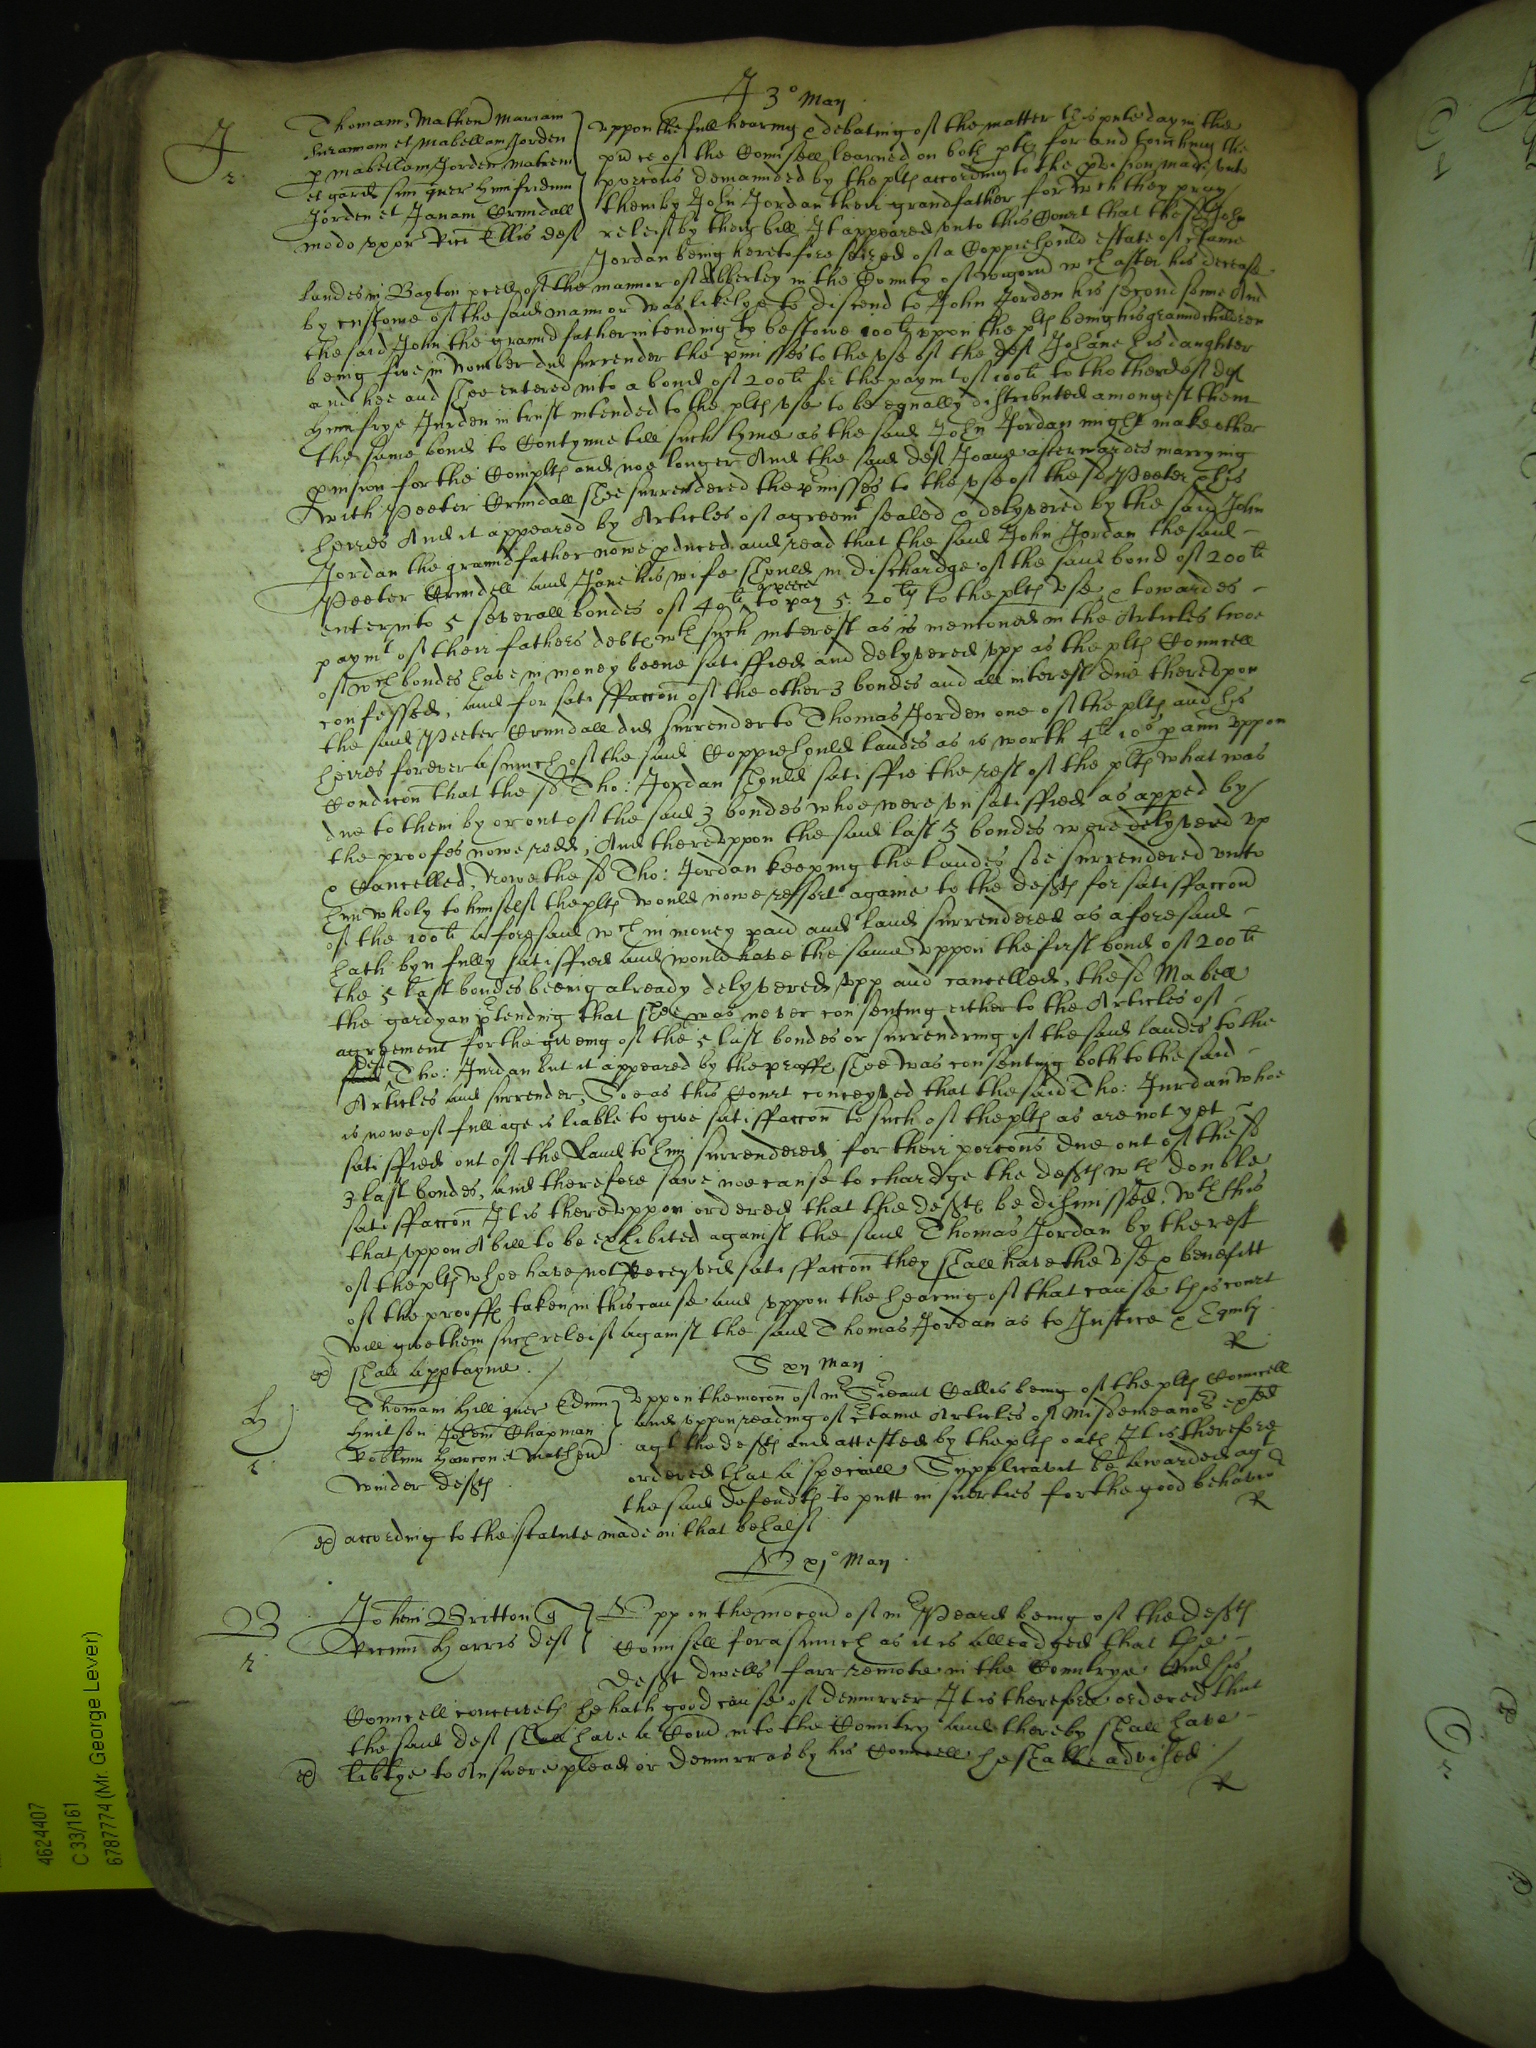 J 3° Maij
J
r
Thomam, Matheu Mariam
Susannam et Mabellam Jorden
p Mabellam Jorden Matrem
et gard: sua quer Humfridum
Jorden et Janam Crundall
modo uxor Rici Ellis def
Uppon the full hearing & debating of the matter this pnte day in the
pnce of the Counsell learned on both ptes for and touching the
porcons demaunded by the plts according to the pvision made unto
them by John Jordan their grandfather for wch they pray
releif by their bill It appeared unto this Court that the sd John
Jordan being heretofore seized of a Coppiehould estate of ctaine
landes in Bayton pcell of the mannor of Abberley in the County of wigorn wch after his decease
by custome of the said mannor was likelye to discend to John Jorden his second sonne And
the said John the grandfather intending to bestowe 100li uppon the plts being his graundchildren
being five in Number did surrender the pmisses to the use of the def Johane his daughter
and hee and shee entered into a bond of 200li for the paymt of 100li to the other def
Humfrye Jurden in trust intended to the plts use to be equally distributed amongest them
the same bond to Contynue till such tyme as the said John Jordan might make other
pvision for the Complts and noe longer And the said def Joane afterwardes marrying
with Peeter Crundall shee surrendered the pmisses to the use of the sd Peeter & his
heires And it appeared by Articles of agreemt sealed & delyvered by the said John
Jordan the graundfather nowe pduced and read that the said John Jordan the said
Peeter Crundell and Jone his wife should in dischardge of the said bond of 200li
enter into 5 severall bondes of 40li apeece to pay 5. 20ty to the plts use & towardes
paymt of their fathers debts wth such interest as is mencioned in the Articles twoe
of wch bondes have in money beene satisffied and delyvered upp as the plts Councell
confessed, and for satisffaccon of the other 3 bondes and all interest due thereuppon
the said Peeter Crundall did surrender to Thomas Jorden one of the plts and his
heires forever asmuch of the said Coppiehould landes as is worth 4li 10s p ann uppon
Condicon that the sd Tho: Jordan should satisffie the rest of the plts what was
due to them by or out of the said 3 bondes whoe were unsatisffied as apped by
the proofes nowe redd, And thereuppon the said last 3 bondes were delyvered up
& Cancelled, Nowe the sd Tho: Jordan keeping the landes soe surrendered unto
him wholy to himself the plts would nowe ressort againe to the defts for satisffaccon
of the 100li aforesaid wch in money paid and land surrendered as aforesaid
hath byn fully satisffied and would have the same uppon the first bond of 200li
the 5 last bondes beeing already delyvered upp and cancelled, the sd Mabell
the gardyan ptending that shee was never consenting either to the Articles of
agreement for the giveing of the 5 last bondes or surrendring of the said landes to the
def Tho: Jurdan but it appeared by the proffs shee was consenting both to the said
Articles and surrender, Soe as this Court conceyved that the said Tho: Jurdan whoe
is nowe of full age is liable to give satisffaccon to such of the plts as are not yet
satisffied out of the Land to him surrendered for their porcons due out of the sd
3 last bondes, and therefore sawe noe cause to chardge the defts wth double
satisffaccon It is thereuppon ordered that the defts be dismissed. Wth this
that uppon A bill to be exhibited against the said Thomas Jordan by the rest
of the plts whoe have not Receyved satisffaccon they shall have the use & benefitt
of the prooffs taken in this cause and uppon the hearing of that cause this court
will give them such releif against the said Thomas Jordan as to Justice & Equity
shall apptayne.
R
S xij Maij
H
r
Thomam Hill quer Edmu
Huitson Johem Chapman
Robtum Hawcon et Mathew
Winder defts
Uppon the mocon of mr Sieant Callis being of the plts Councell
and uppon reading of ctaine Articles of Misdemeanors expssed
agt the defts and attested by the plts oath It is therefore
ordered that a speciall Supplicavit be awarded agt
the said defendts to putt in suerties for the good behavior
according to the statute made in that behalf
R
xj° Maij
B
r
Johem Britton q
Arthurum Harris def
Uppon the mocon of mr Peard being of the defts
Counsell forasmuch as it is alleadged that the
deft dwells farr remote in the Countrye And his
Councell conceiveth he hath good cause of demurrer It is therefore ordered that
the said def shall have a Comn into the Country and thereby shall have
libtye to Answere plead or demurr as by his Councell he shalbe advised
R
4624407
C 33/161
6787774 (Mr. George Lever)